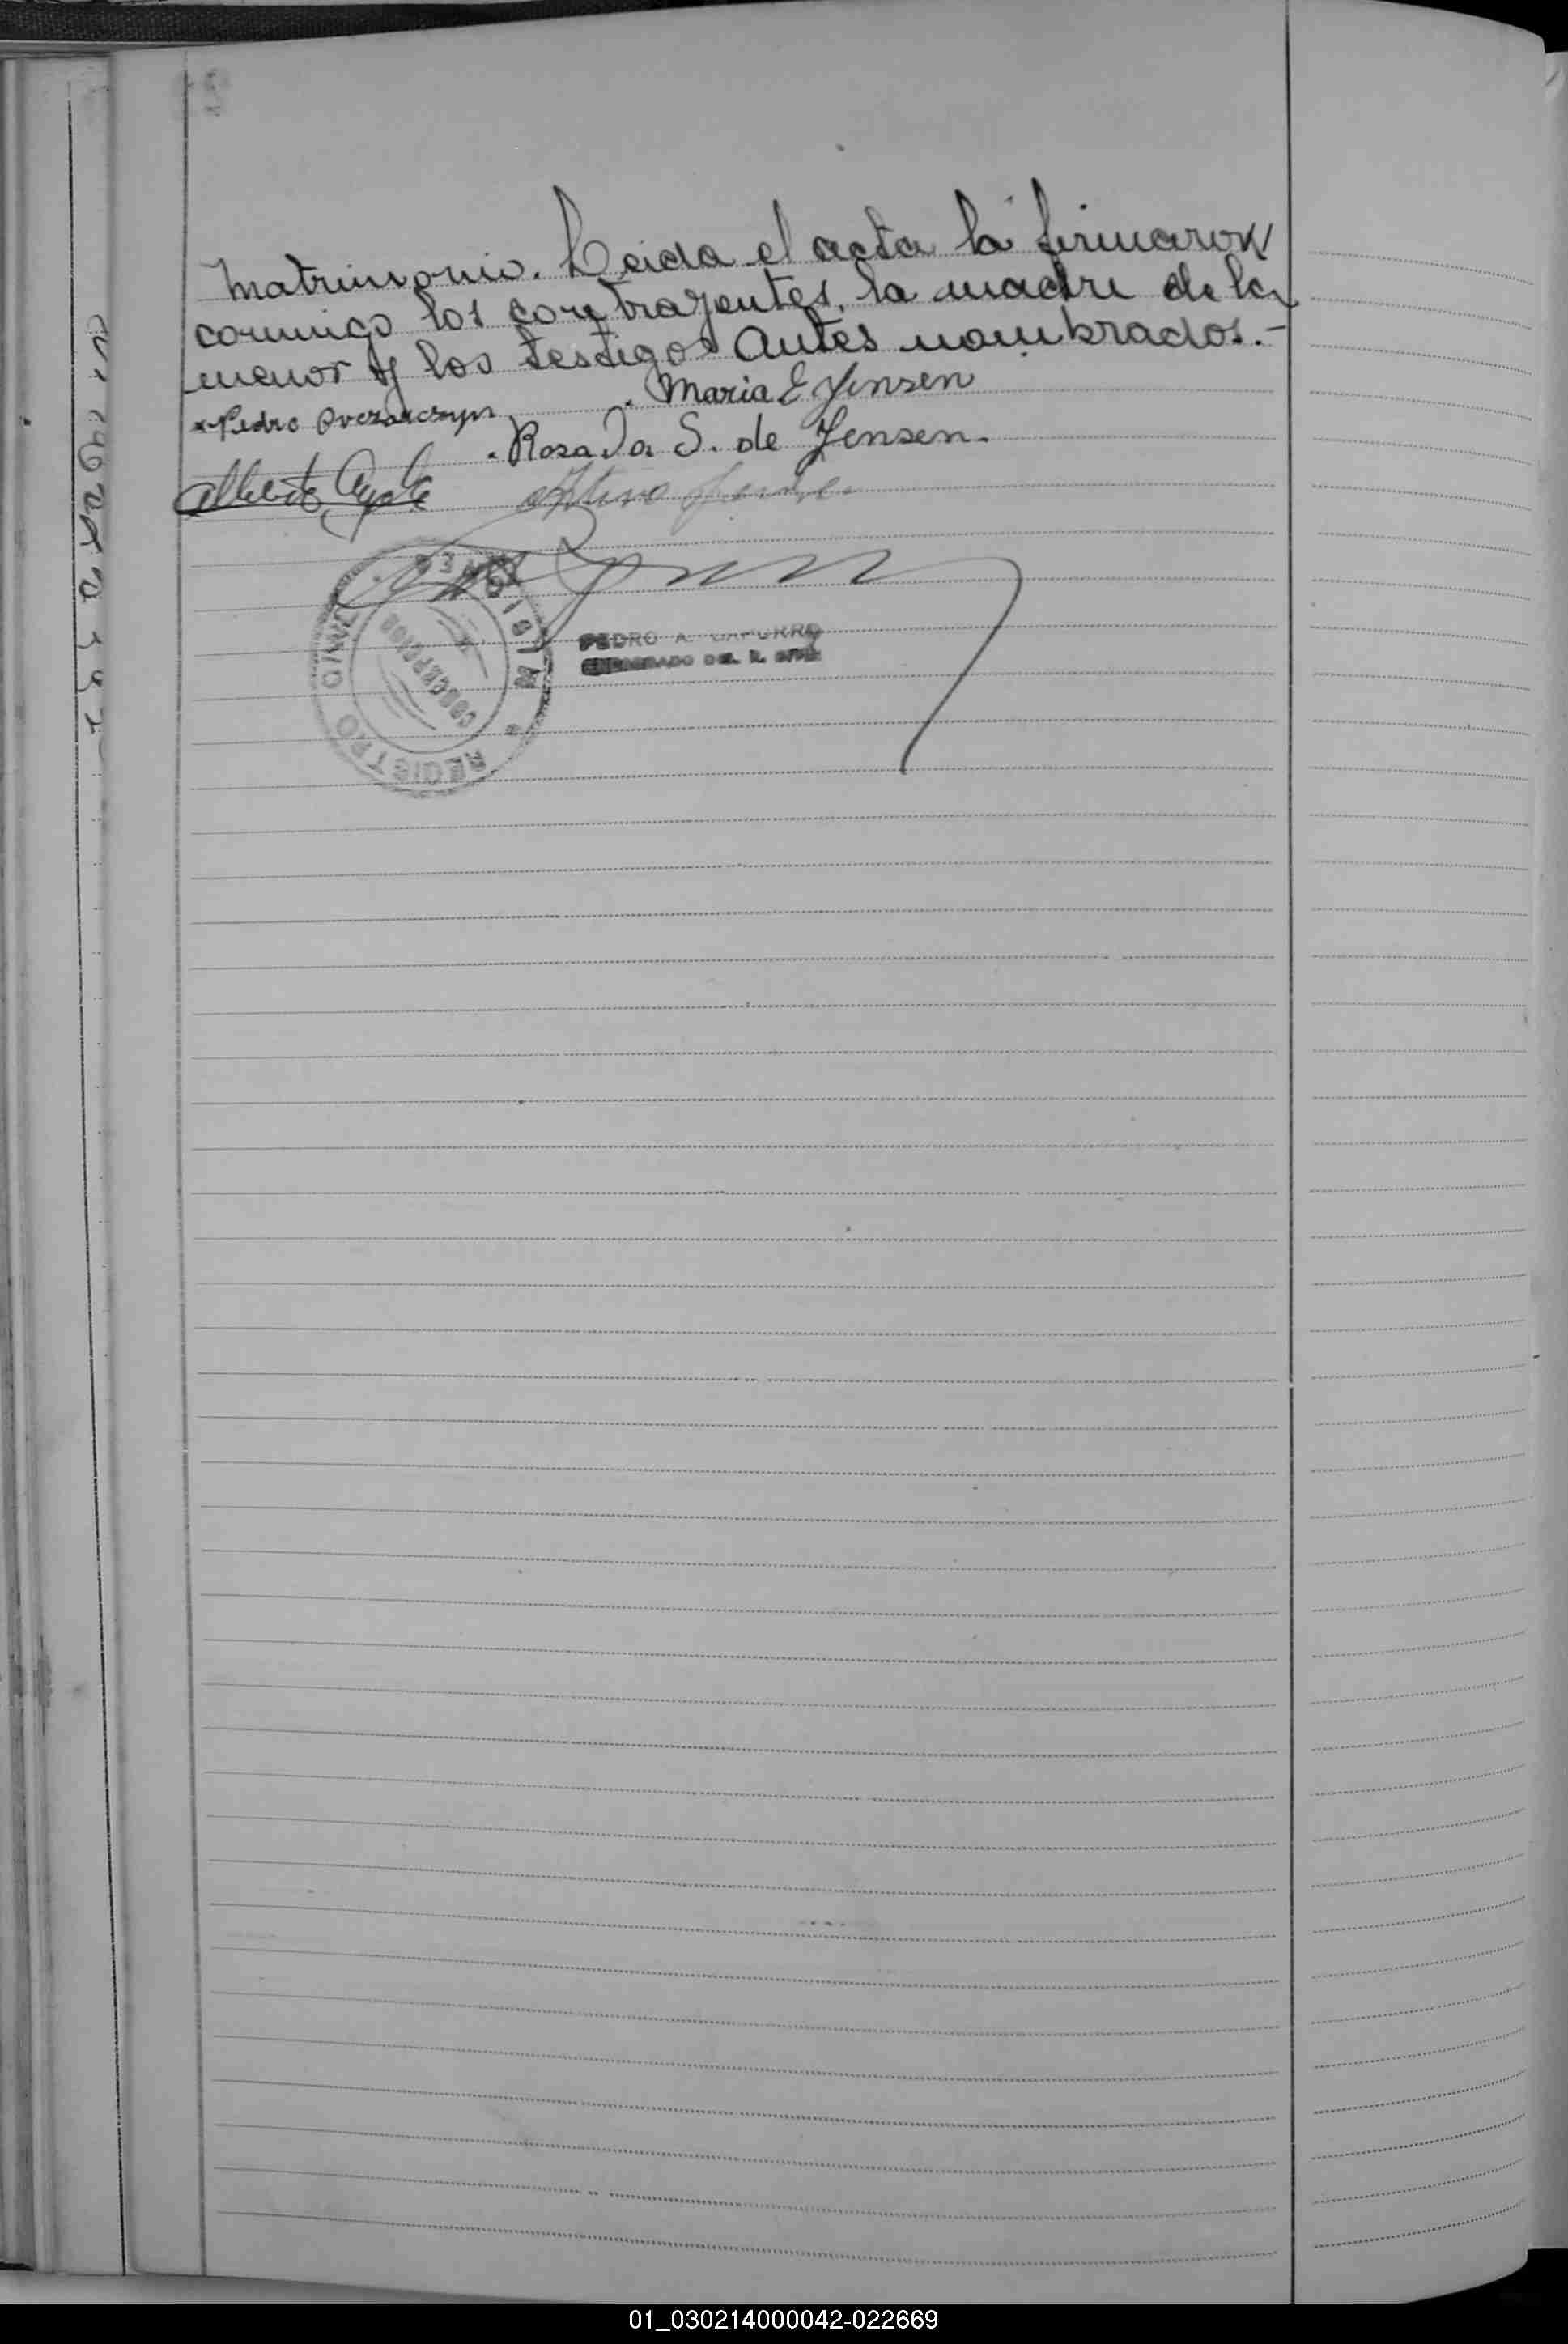 matrimonio. Leida el acta la firmaron
conmigo los contrayentes, la madre de la
menor y los testigos antes nombrados.-
Pedro Owczarczyn
Maria E Jensen
Rosa Da S. de Jensen.
Alberto
PEDRO A. CAPURRO
ENCARGADO DEL R. CIVIL
MISIONES
REGISTRO CIVIL
CONCEPCION
01_030214000042-022669